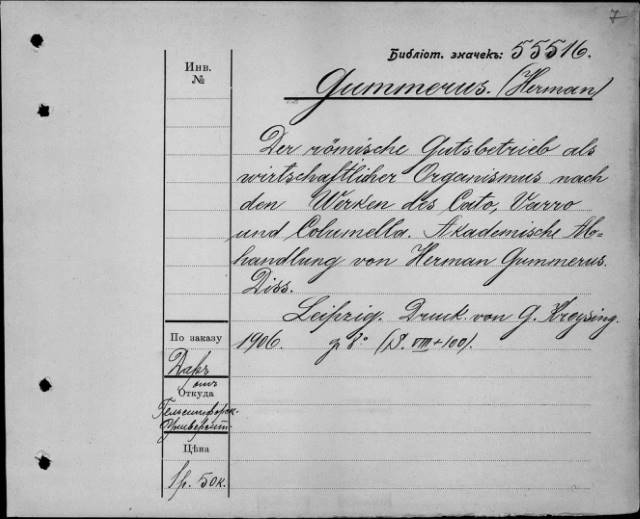 7
Библіот. значекъ: 55516.
Инв.
№
Gummerus. (Herman)
Der römische Gutsbetrieb als
wirtschaftlicher Organismus nach
den Werken des Cato, Varro
und Columella. Akademische Ab=
handlung von Herman Gummerus.
Diss.
Leipzig. Druck. von G. Kreysing.
1906. gr 8° (S. VIII + 100).
По заказу
Даръ
отъ
Откуда
Гельсингфорск.
Университ.
Цѣна
1р. 50к.